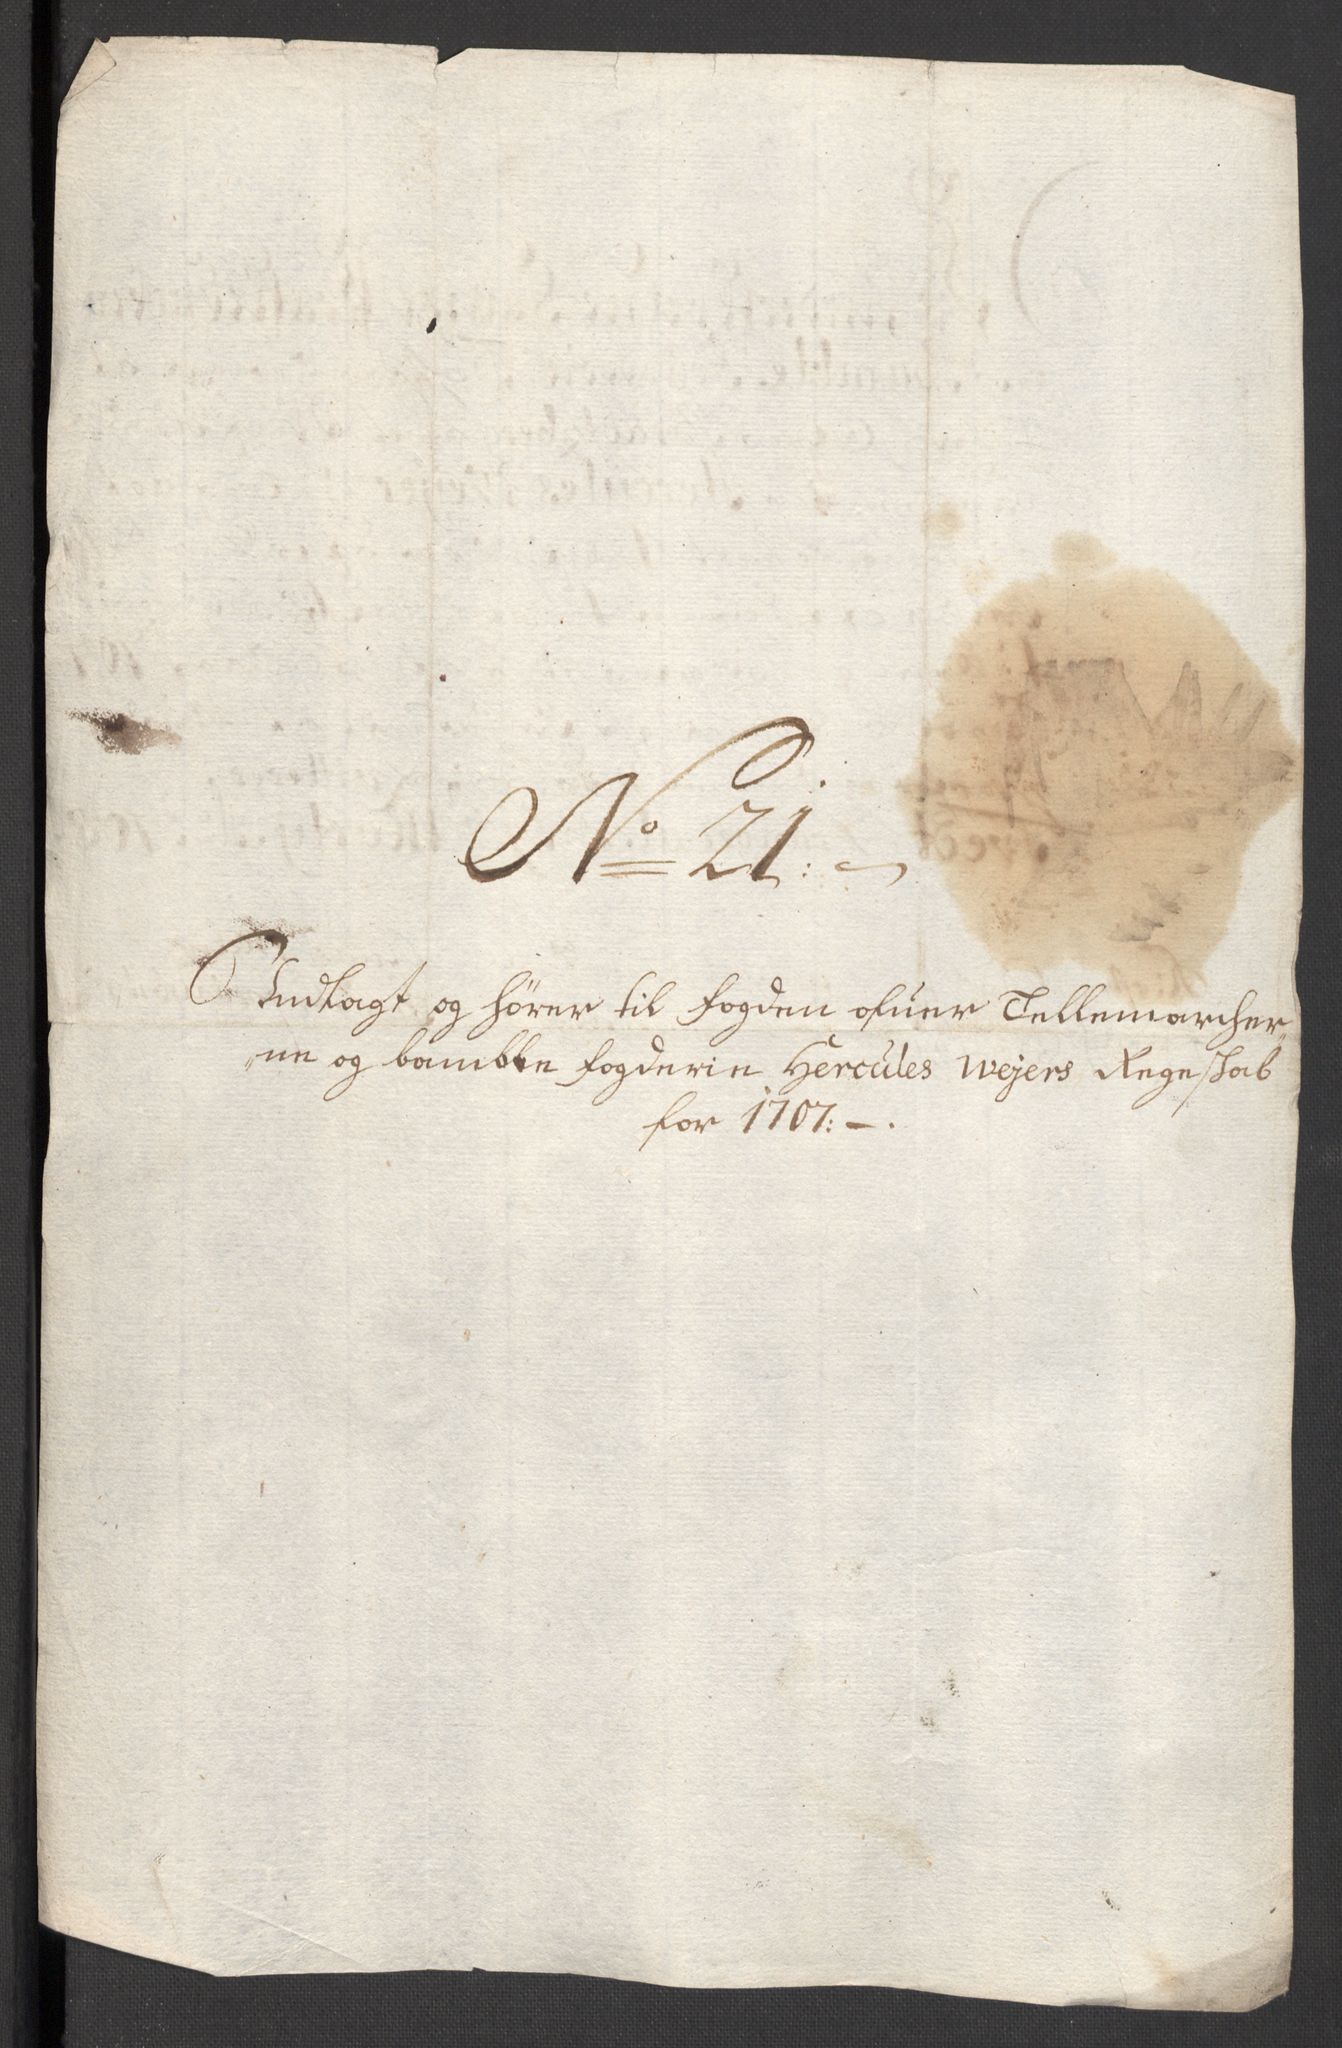 No 21:
Indlagt og hører til fogden ofuer Tellemarcher„
„ne og bamble fogderie Hercules Wejers Regeskab
for 1707:—.